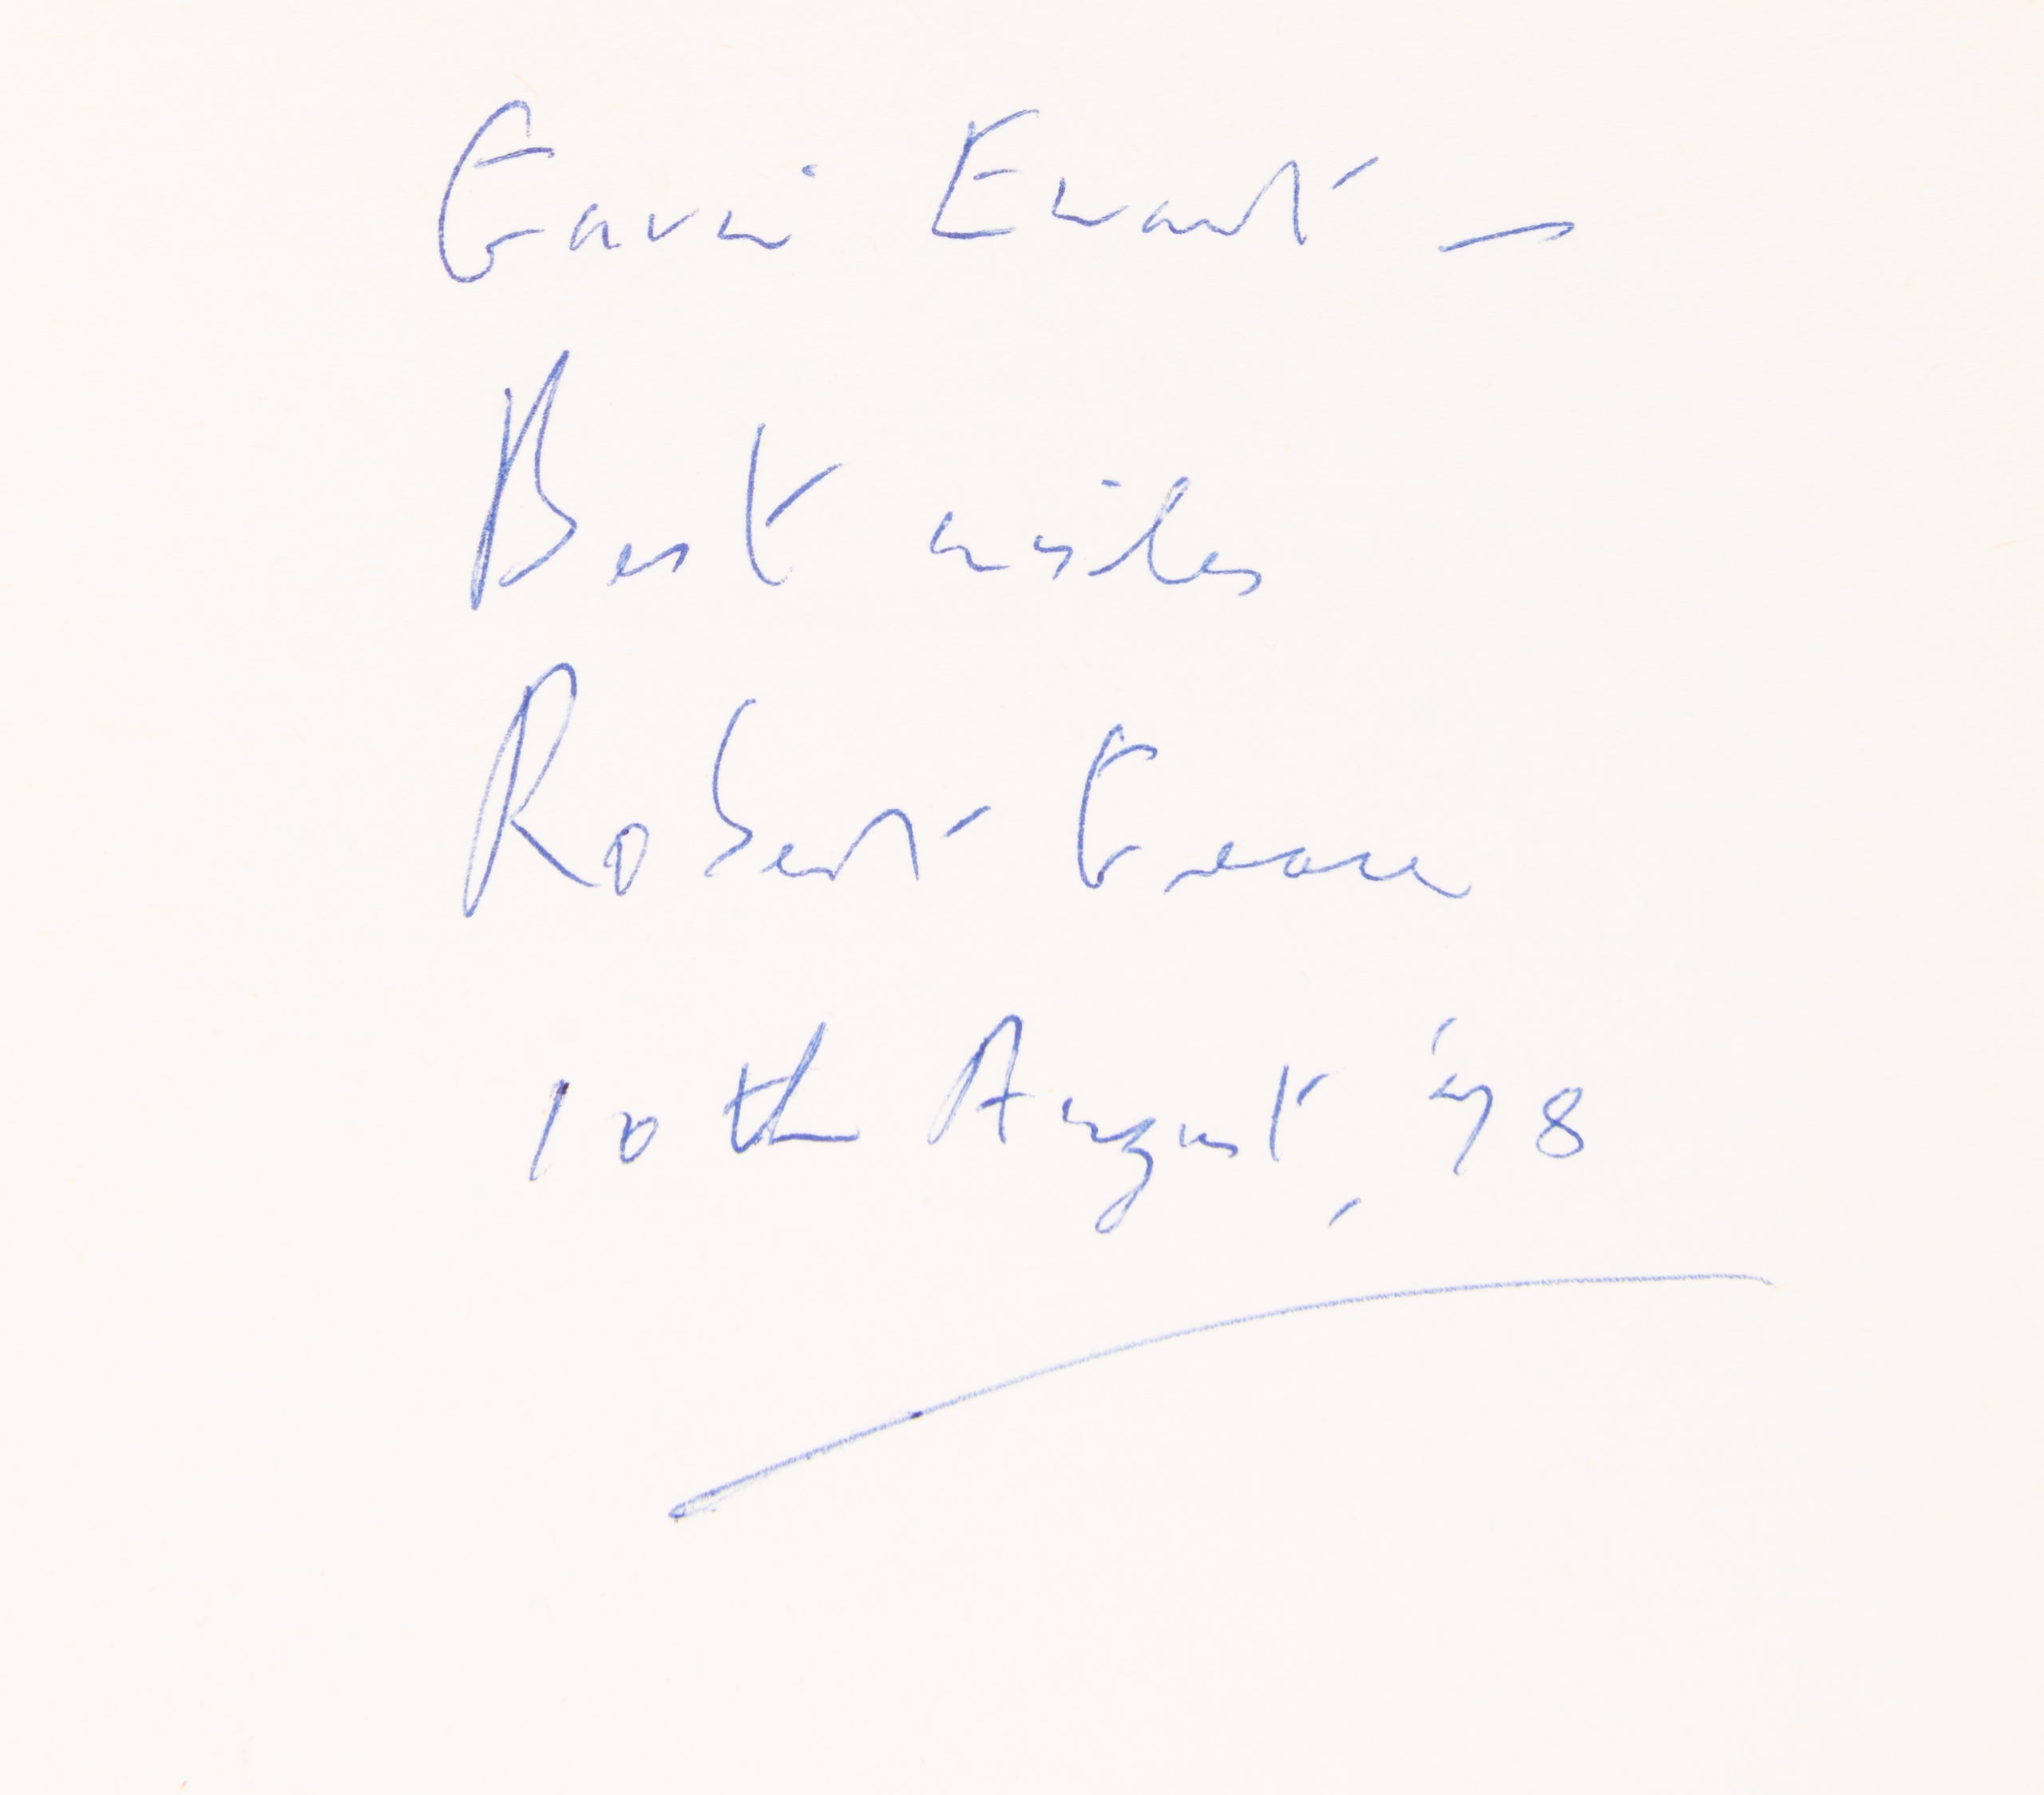 Gavin Ewart —
Best wishes
Robert Greacen
10th August, '78